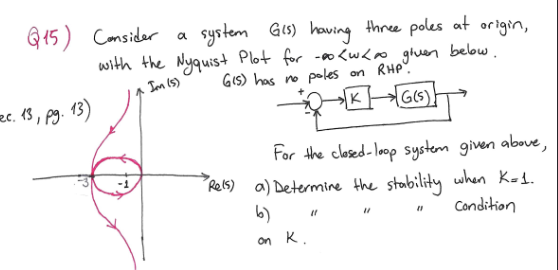 Q15) Consider a system G(s) having three poles at origin,
with the Nyquist Plot for -∞<w<∞ given below.
G(s) has no poles on RHP.
Im(s)
ec. 13, pg. 13)
+
-
K
G(s)
-3
-1
Re(s)
For the closed-loop system given above,
a) Determine the stability when K=1.
b) " " " Condition
on K.